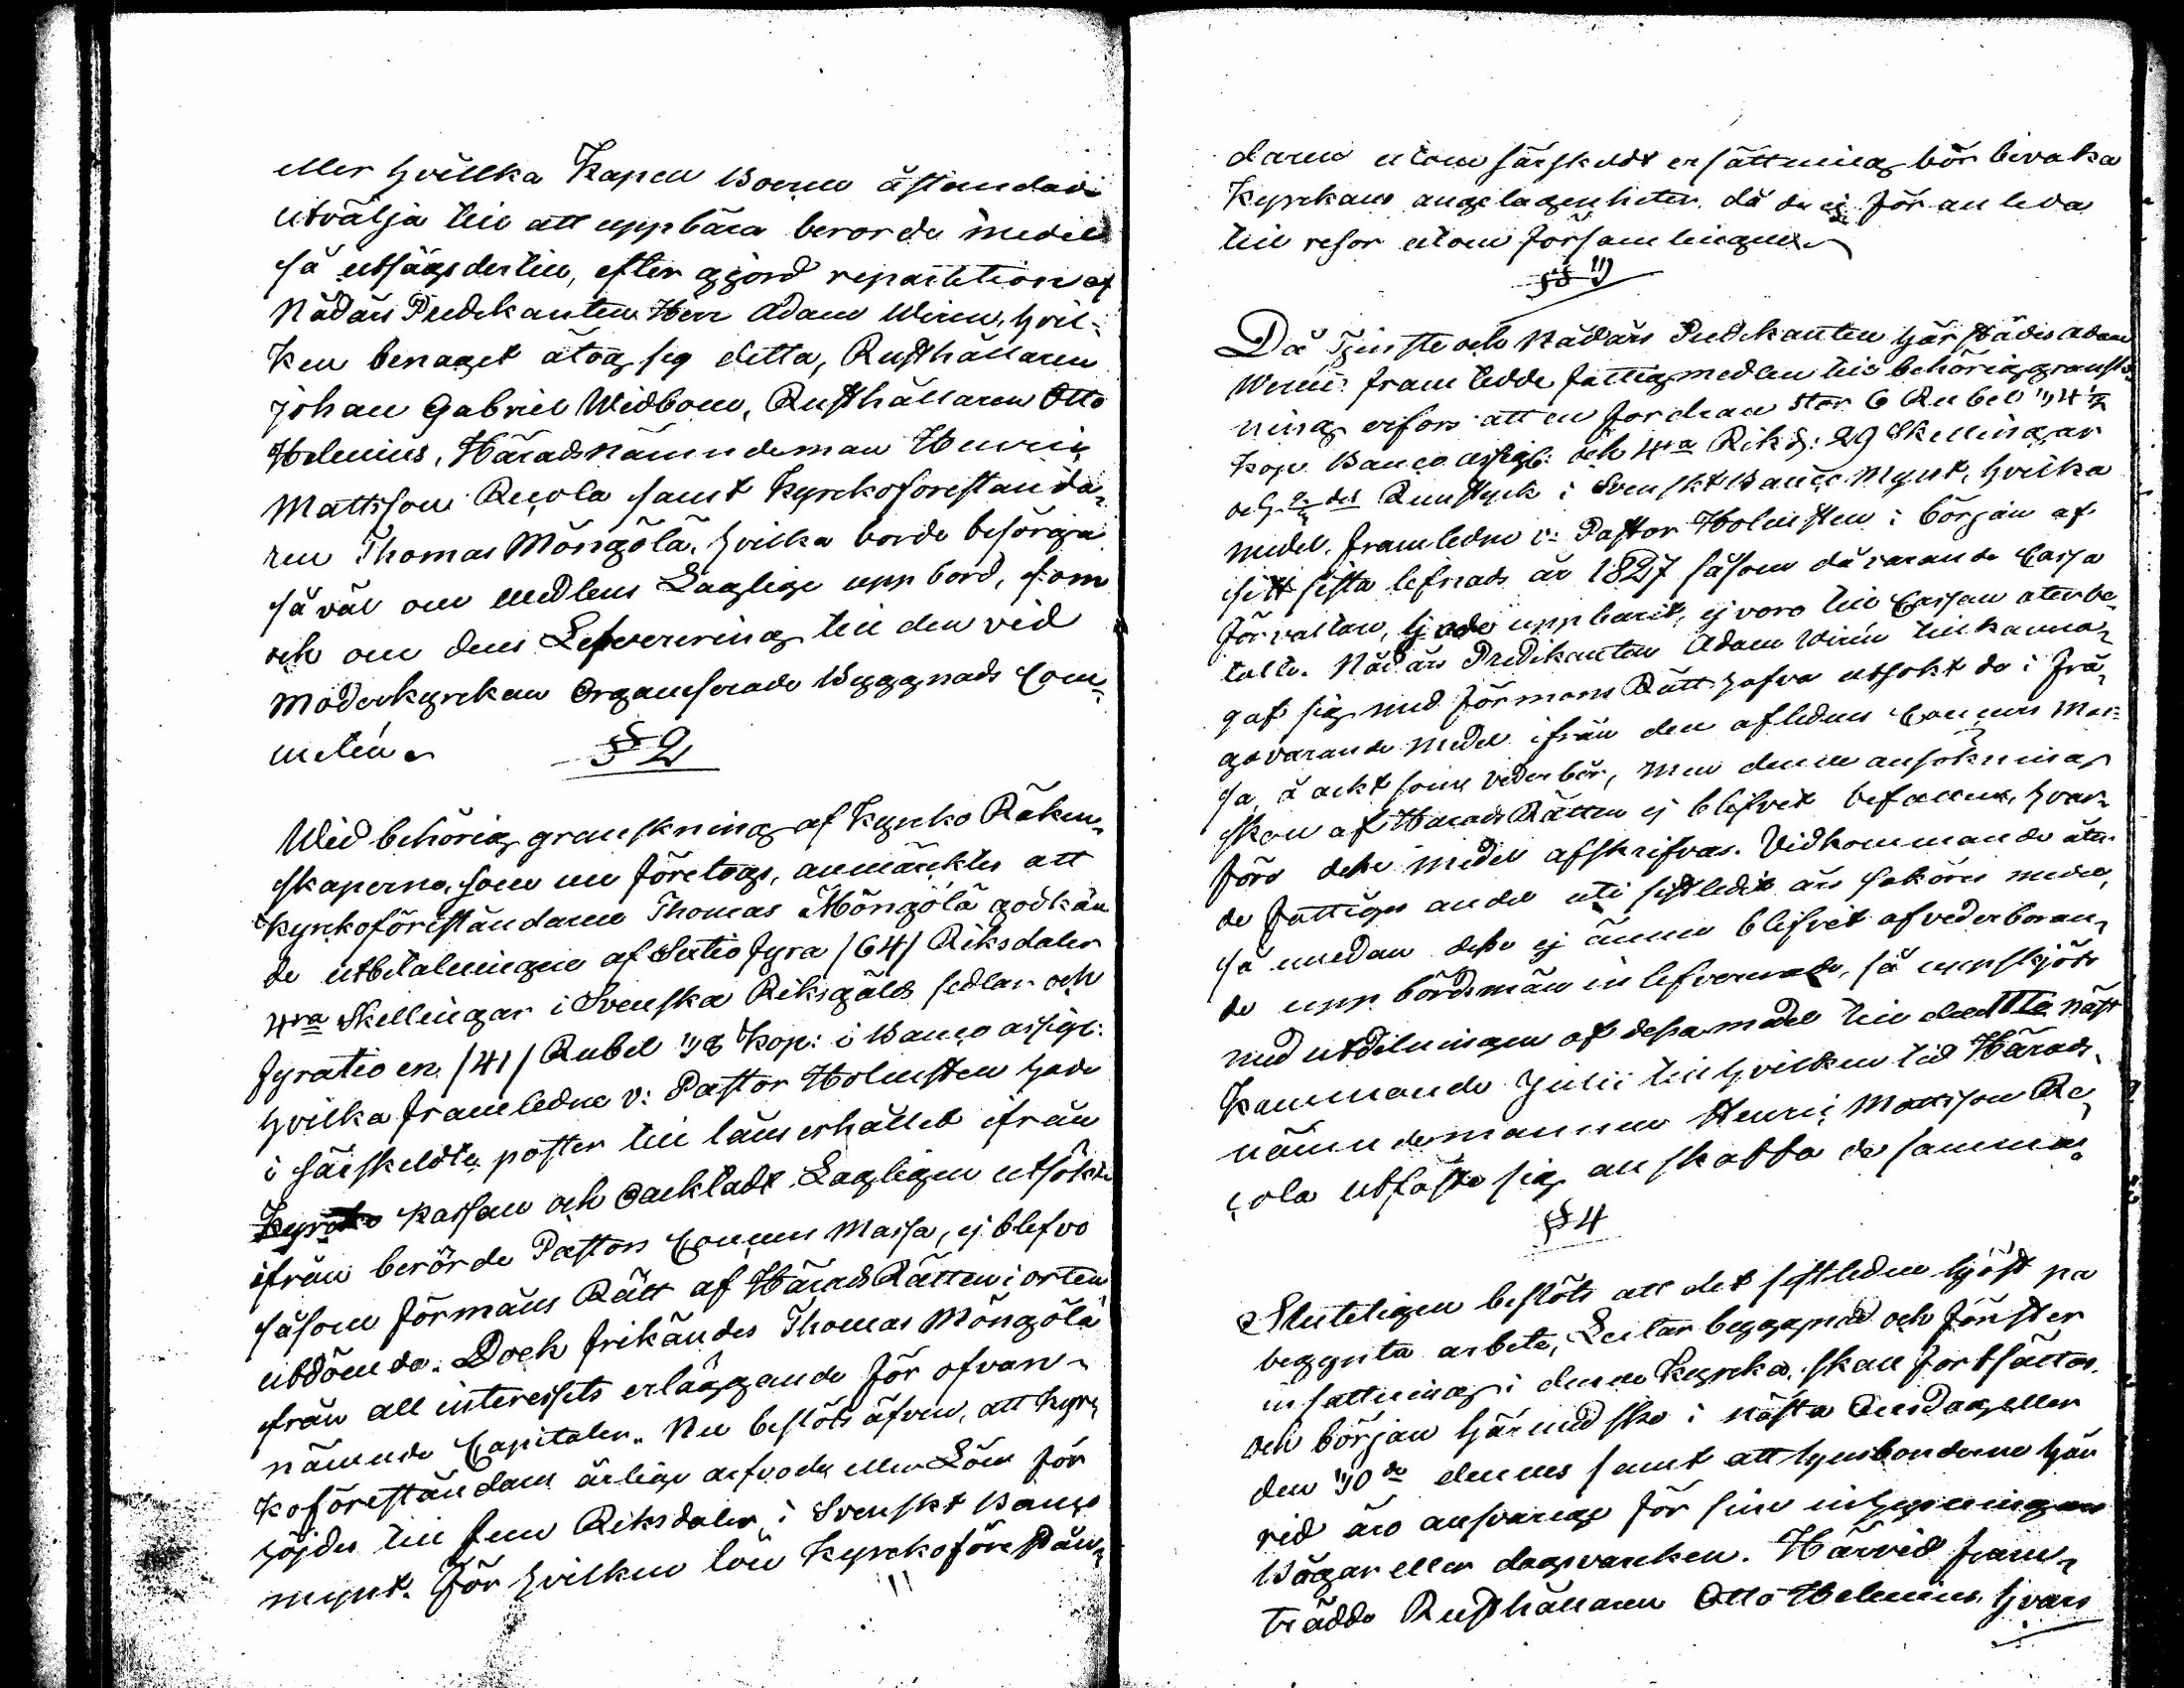 eller hvillka Kapell Boerne åstundade
utvälja till att uppbära berorde medel
så utsågs dertill, efter gjord repartition af
Nådårs Predikanten Herr Adam Wirén, hvil-
ken benäget åtog sig detta, Rusthållaren
Johan Gabriel Widbom, Rusthållaren Otto
Helenius, Häradsnämndeman Henric
Mattsson Reçola samt Kyrckoforestånda-
ren Thomas Möngölä, hvilka borde besörja
så väl om medlens Laglige uppbörd, som
och om dens Lefverering till den vid
Moderkyrckan Organiserade Byggnads Com-
mitén.
§ 2
Wid behörig granskning af Kyrcko Räken-
skaperne, som nu företogs, anmärcktes att
Kyrckoföreståndaren Thomas Möngölä godkän
de utbetalningen af Sextio fyra /64/ Riksdaler
4ra Skellingar i Svenska Riksgälds sedlar och
fyratio en /41/ Rubel "8 Kop: i Banco assign:
hvilka framledne v: Pastor Holmsten hade
i särskeldte poster till låns erhållet ifrån
Kyrcko kassan och oacktadt Lagligen utsökte
ifrån berörde Pastors Concurs Massa, ej blefvo
såsom förmåns Rätt af Härads Rätten i orten
utdömde. Doch frikändes Thomas Möngölä
från all interessets erläggande för ofvan-
nämnde Capitaler. Nu beslöts äfven, att Kyrc-
koföreståndarns årlige arfvode eller Lön för
höjdes till fem Riksdaler i Svenskt Banco
mynt. För hvilken lön Kyrckoförestån-
daren utom särskeldt ersättning bör bevaka
Kyrckans angelägenheter, då de ej föranleda
till resor utom församlingen.
§ 3
Då Tjenste och Nådårs Predikanten härstädes Adam
Wirén framtedde fattigmedlen till behörig gransk-
ning erfors att en fordran stor 6 Rubel "4 1/2
Kop. Banco assign: och 4ra Riksd: 29 Skellingar
och Runstyck i Svenskt Banco Mynt, hvilka
medel framledne v: Pastor Holmsten i början af
sitt sista lefnads år 1827 såsom då varande Cassa
förvaltare, hade uppburit, ej voro till Cassan återbe-
talte. Nådårs Predikanten Adam Wirén tillkänna-
gaf sig med förmons Rätt hafva utsökt de i frå-
gavarande medel ifrån den aflednes Concurs Mas-
sa, å ackt som vederbör, men denne ansökning
skall af Härads Rätten ej blifvit befallen, hvar-
före desse medel afskrifvas. Vidkommande åter
de fattiges andel uti sistledit års saköres medel,
så emedan desse ej ännu blifvit af vederböran-
de uppbördsmän inlefvererade, så uppskjöts
med utdelningen af dessa medel till den näst
Kommande Julii till hvilken tid Härads-
nämndemannen Henric Mattsson Re-
çola utfäste sig anskaffa de samma.
§ 4
Sluteligen beslöts att det sistledne höst på
begynta arbete, Lectar byggnad och fönster
insättning i denne Kyrcka, skall fortsättas,
och början härmed ske i nästa Onsdag eller
den "10de dennes samt att husbonderne här
vid äro ansvarige för sine inhysningars
Vägar eller dagsvercken. Härvid fram-
trädde Rusthållaren Otto Helenius, hvars